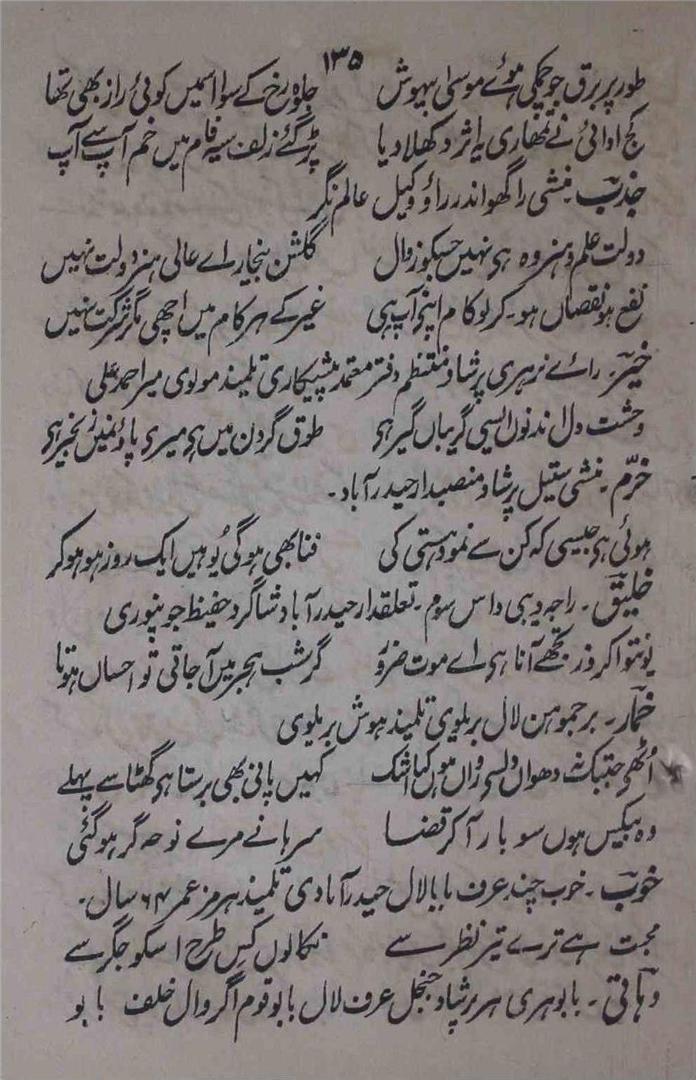 ۱۳۵
طور پر برق جو چمکی ہوئے موسیٰ بیہوش جلوہ رخ کے سوا اسمیں کوئی راز بھی تھا
کج ادائی نے تمھاری یہ اثر دکھلا دیا پڑ گئے زلف سیہ فام میں خم آپ سے آپ
جذبؔ۔ منشی راگھواندر راؤ وکیل عالم نگر
دولت علم و ہنر وہ ہی نہیں جسکو زوال گلشن بیخار ہے عالی ہنر دولت نہیں
نفع ہو نقصاں ہو۔ کر لو کام اپنے آپ ہی غیر کے ہر کام میں اچھی مگر شرکت نہیں
خیرؔ۔ رائے نرہری پرشاد منتظم دفتر معتمد پیشکاری تلمیذ مولوی میر احمد علی
وحشت دل اندنوں ایسی گریباں گیر ہی طوق گردن میں ہی میری پاؤنمیں زنجیر ہی
خرّم۔ منشی ستیل پرشاد منصبدار حیدرآباد۔
ہوئی ہی جیسی کہ کن سے نمود ہستی کی فنا بھی ہوگی یوہیں ایک روز ہو ہو کر
خلیقؔ۔ راجہ دیبی داس سوم۔ تعلقدار حیدرآباد شاگرد حفیظ جونپوری
یونتو اکروز تجھے آنا ہی اے موت ضرور گر شب ہجر میں آجاتی تو احساں ہوتا
خمارؔ۔ برجموہن لال بریلوی تلمیذ ہوش بریلوی
اُٹھی جبتک نہ دھواں دلسی رواں ہوں کیا اشک کہیں پانی بھی برستا ہی گھٹا سے پہلے
وہ بیکس ہوں سو بار آ کر قضا سرہانے مرے نوحہ گر ہوگئی
خوبؔ۔ خوب چند عرف بابا لال حیدرآبادی تلمیذ ہرمز عمر ۶۴ سال۔
محبت ہے ترے تیر نظر سے نکالوں کس طرح اسکو جگر سے
۔ بابو ہری ہر پرشاد عرف لال بابو قوم اگروال خلف بابو